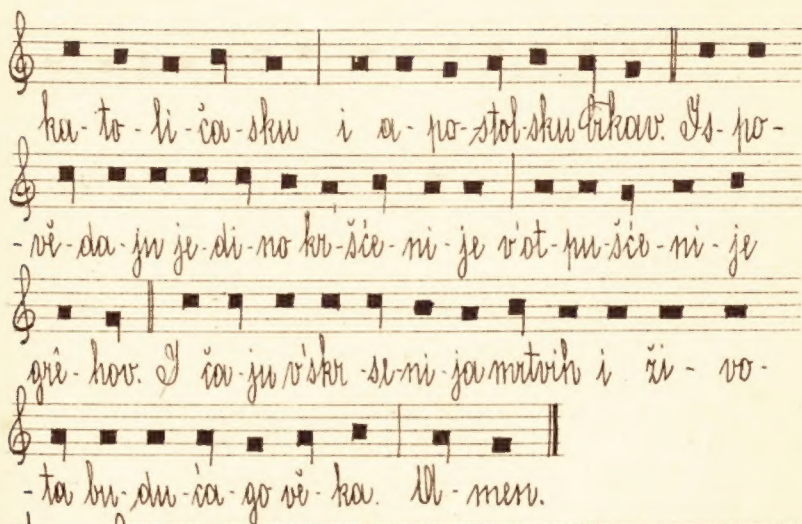 ka-to-li-ča-sku i a-po-stol-sku crkav. Is-po-
-vě-da-ju je-di-no kr-šće-ni-je v'ot-pu-šće-ni-je
grě-hov. I ča-ju v'skr-se-ni-ja mrtvih i ži-vo-
-ta bu-du-ća-go vě-ka. A-men.